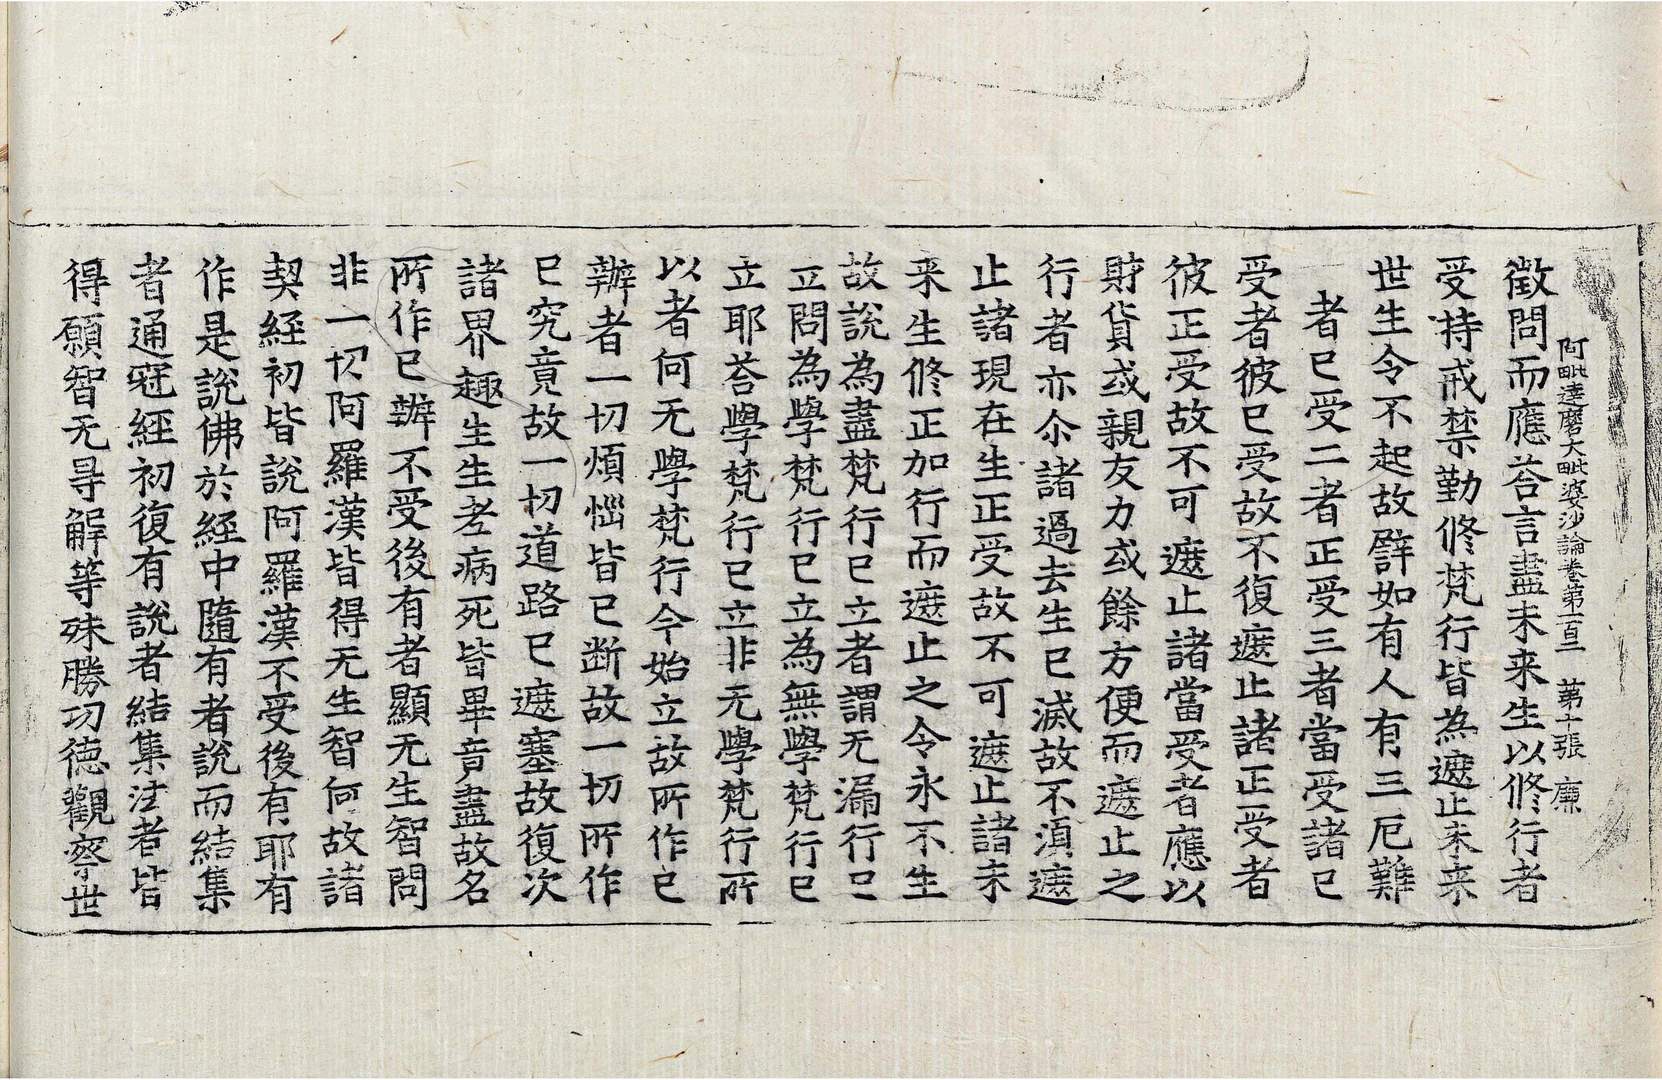 阿毗達磨大毗婆沙論卷第一百二　第十張　廉
徵問而應荅言盡未来生以修行者
受持戒禁勤修梵行皆為遮止未来
世生令不起故辟如有人有三厄難
者已受二者正受三者當受諸已
受者彼已受故不復遮止諸正受者
彼正受故不可遮止諸當受者應以
財貨或親友力或餘方便而遮止之
行者亦尒諸過去生已滅故不湏遮
止諸現在生正受故不可遮止諸未
来生修正加行而遮止之令永不生
故說為盡梵行已立者謂无漏行已
立問為學梵行已立為無學梵行已
立耶荅學梵行已立非无學梵行所
以者何无學梵行今始立故所作已
辦者一切煩惱皆已断故一切所作
已究竟故一切道路已遮塞故復次
諸界趣生生老病死皆畢竟盡故名
所作已辦不受後有者顯无生智問
非一切阿羅漢皆得无生智何故諸
契經初皆說阿羅漢不受後有耶有
作是說佛於經中隨有者說而結集
者通冠經初復有說者結集法者皆
得願智无㝵解等殊勝功德觀察世